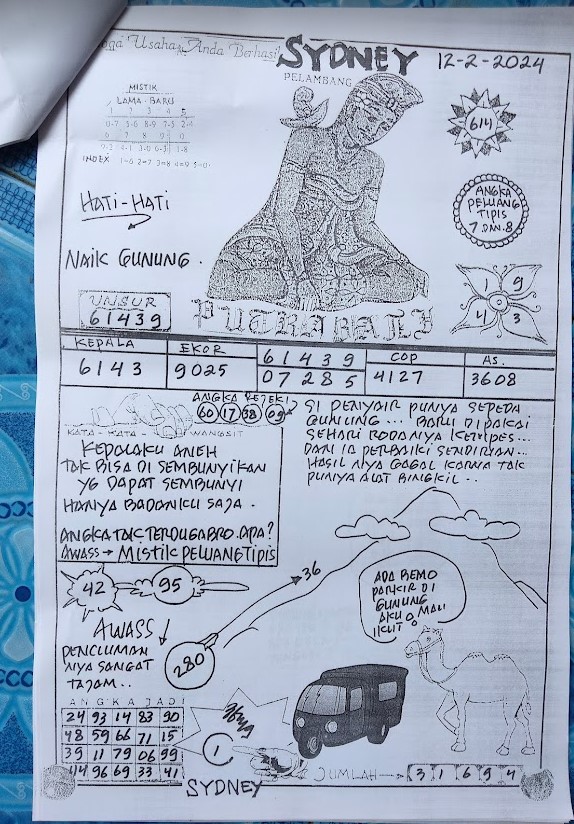 oga Usaha Anda Berhasil
SYDNEY
12-2-2024
PELAMBANG
MISTIK
LAMA - BARU
1 2 3 4 5
0-7 5-6 8-9 7-5 2-4
6 7 8 9 0
INDEX 1=6 2=7 3=8 4=9 5=0
614
HATI-HATI
ANGKA
PELUANG
TIPIS
7 DAN 8
NAIK GUNUNG .
1 9
4 3
UNSUR
61439
PUTRA BALI
KEPALA
EKOR
6 1 4 3 9
COP
AS.
6143
9025
0 7 2 8 5
4127
3608
ANGKA REJEKI
60 17 38 09
KATA - KATA - WANGSIT
KEPALAKU ANEH
TAK BISA DI SEMBUNYIKAN
YG DAPAT SEMBUNYI
HANYA BADANKU SAJA .
ANGKA TAK TERDUGA BRO. APA?
AWASS → MISTIK PELUANG TIPIS
SI PENYAIR PUNYA SEPEDA
GUNUNG ... BARU DIPAKAI
SEHARI RODANYA KEMPES...
DAN IA PERBAIKI SENDIRIAN...
HASIL NYA GAGAL KARNA TAK
PUNYA ALAT BINGKIL ..
42
95
36
ADA BEMO
PARKIR DI
GUNUNG
AKU MAU
IKUT
AWASS
PENCIUMAN
NYA SANGAT
TAJAM..
280
ANGKA JADI
24 93 14 83 90
48 59 66 71 15
39 11 79 06 99
114 96 69 33 41
1
SYDNEY
JUMLAH → 3 1 6 9 4